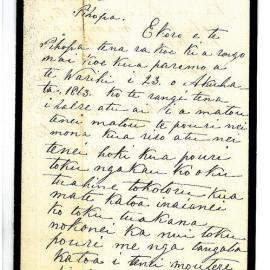 Pihopa.
Ekoro e te
Pihopa tena ra koe kia rongo
mai koe kua paremo a
te Wariki i 23. o Akuha-
ta. 1863. ko te rangi tena
i haere atu ai i a matou
tenei matou te pouri nei
mona kua riro atu nei
tenei hoki kua pouri
toku ngakau ko oku
tuahine tokotoru kua
mate katoa inaianei
ko toku tuakana
nokonei ka nui toku
pouri me nga tangata
katoa i tenei moutere